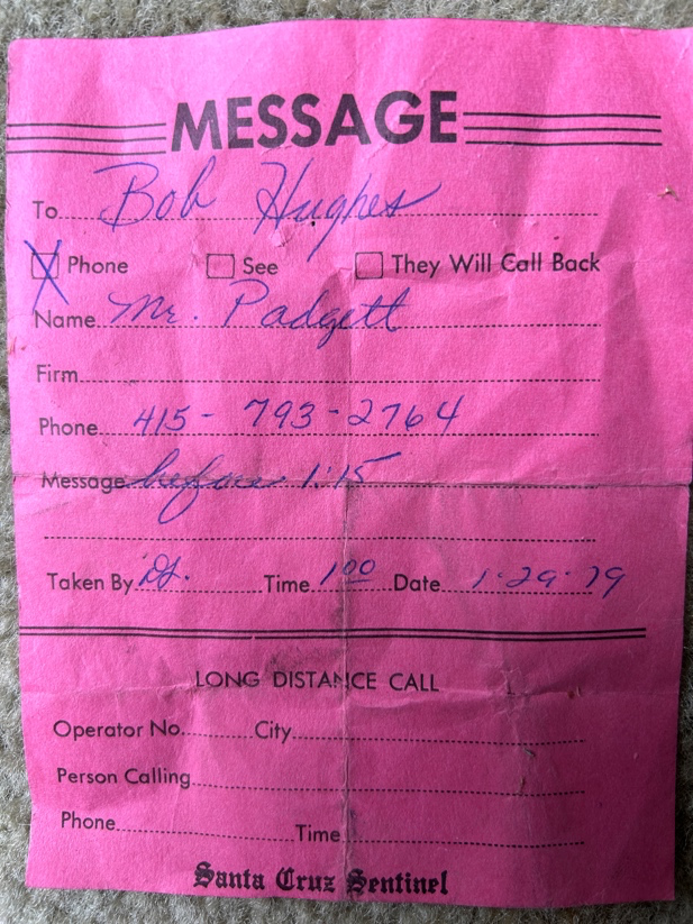 MESSAGE
To Bob Hughes
Phone See They Will Call Back
Name Mr. Padgett
Firm
Phone 415-793-2764
Message before 1:15
Taken By Time 1 00 Date 1-29-79
LONG DISTANCE CALL
Operator No. City
Person Calling
Phone Time
Santa Cruz Sentinel